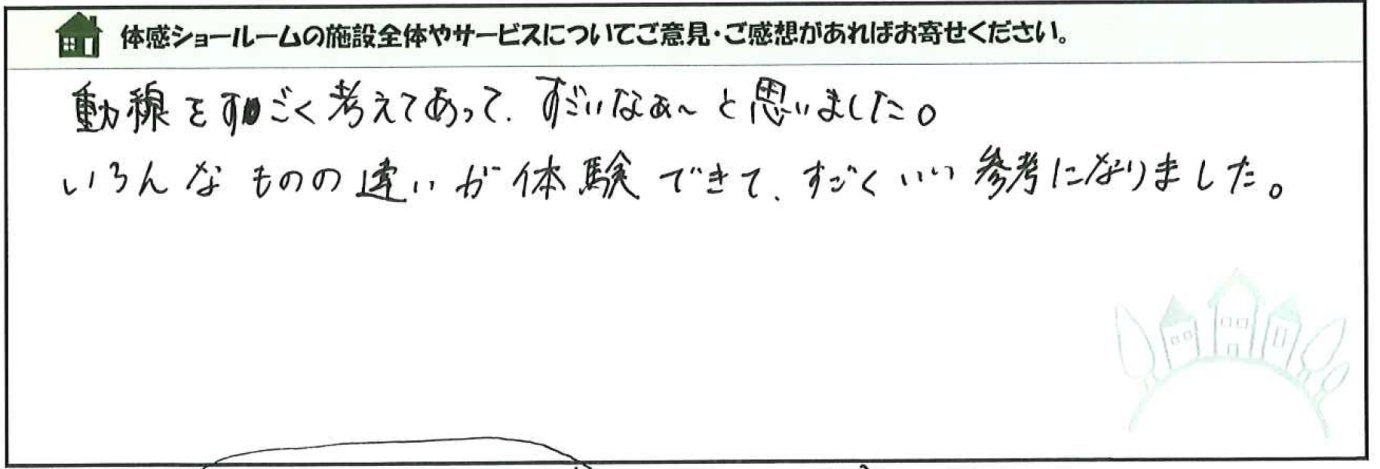 体感ショールームの施設全体やサービスについてご意見・ご感想があればお寄せください。
動線をすごく考えてあって、すごいなぁ～と思いました。
いろんなものの違いが体験できて、すごくいい参考になりました。